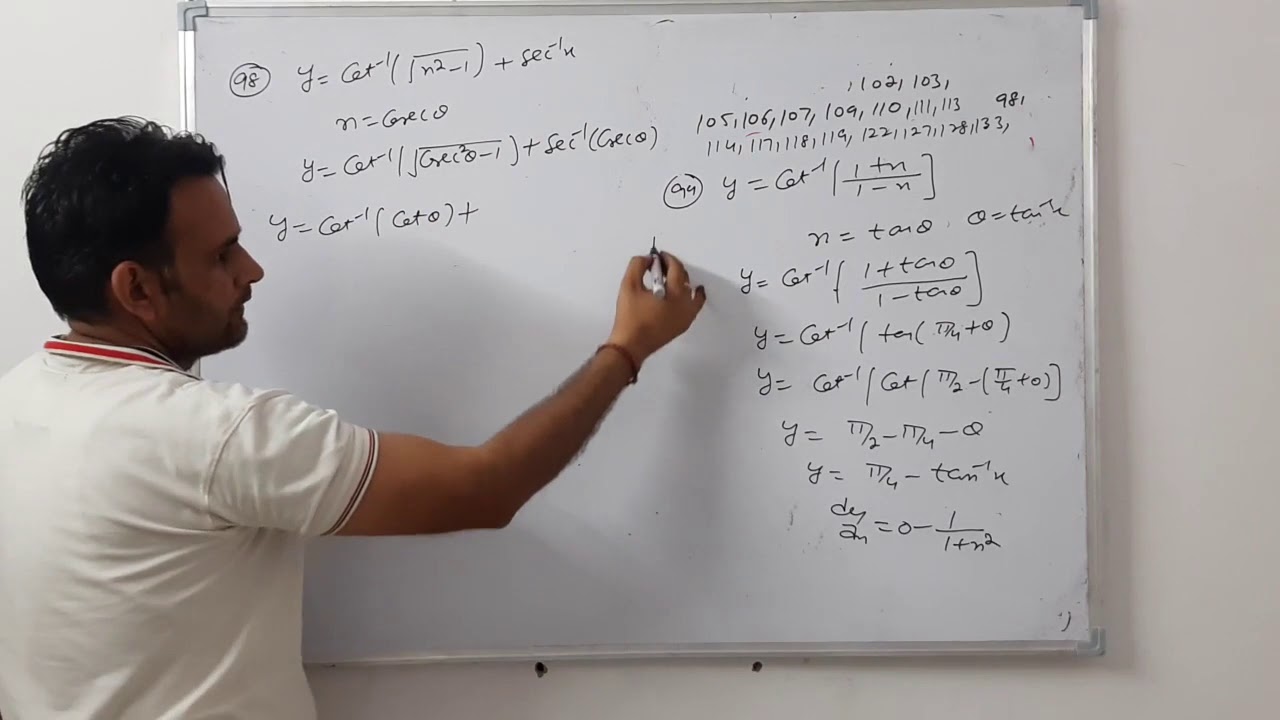 98 y = Cot⁻¹(√x²-1) + sec⁻¹x
x = Cosecθ
y = Cot⁻¹(√Cosec²θ-1) + sec⁻¹(Cosecθ)
y = Cot⁻¹(Cotθ) +
, 102, 103,
105, 106, 107, 109, 110, 111, 113 98,
114, 117, 118, 119, 122, 127, 128, 133,
94 y = Cot⁻¹[(1+x)/(1-x)]
x = tanθ θ = tan⁻¹x
y = Cot⁻¹[(1+tanθ)/(1-tanθ)]
y = Cot⁻¹(tan(π/4+θ)
y = Cot⁻¹[Cot(π/2-(π/4+θ)]
y = π/2-π/4-θ
y = π/4 - tan⁻¹x
dy/dx = 0 - 1/(1+x²)